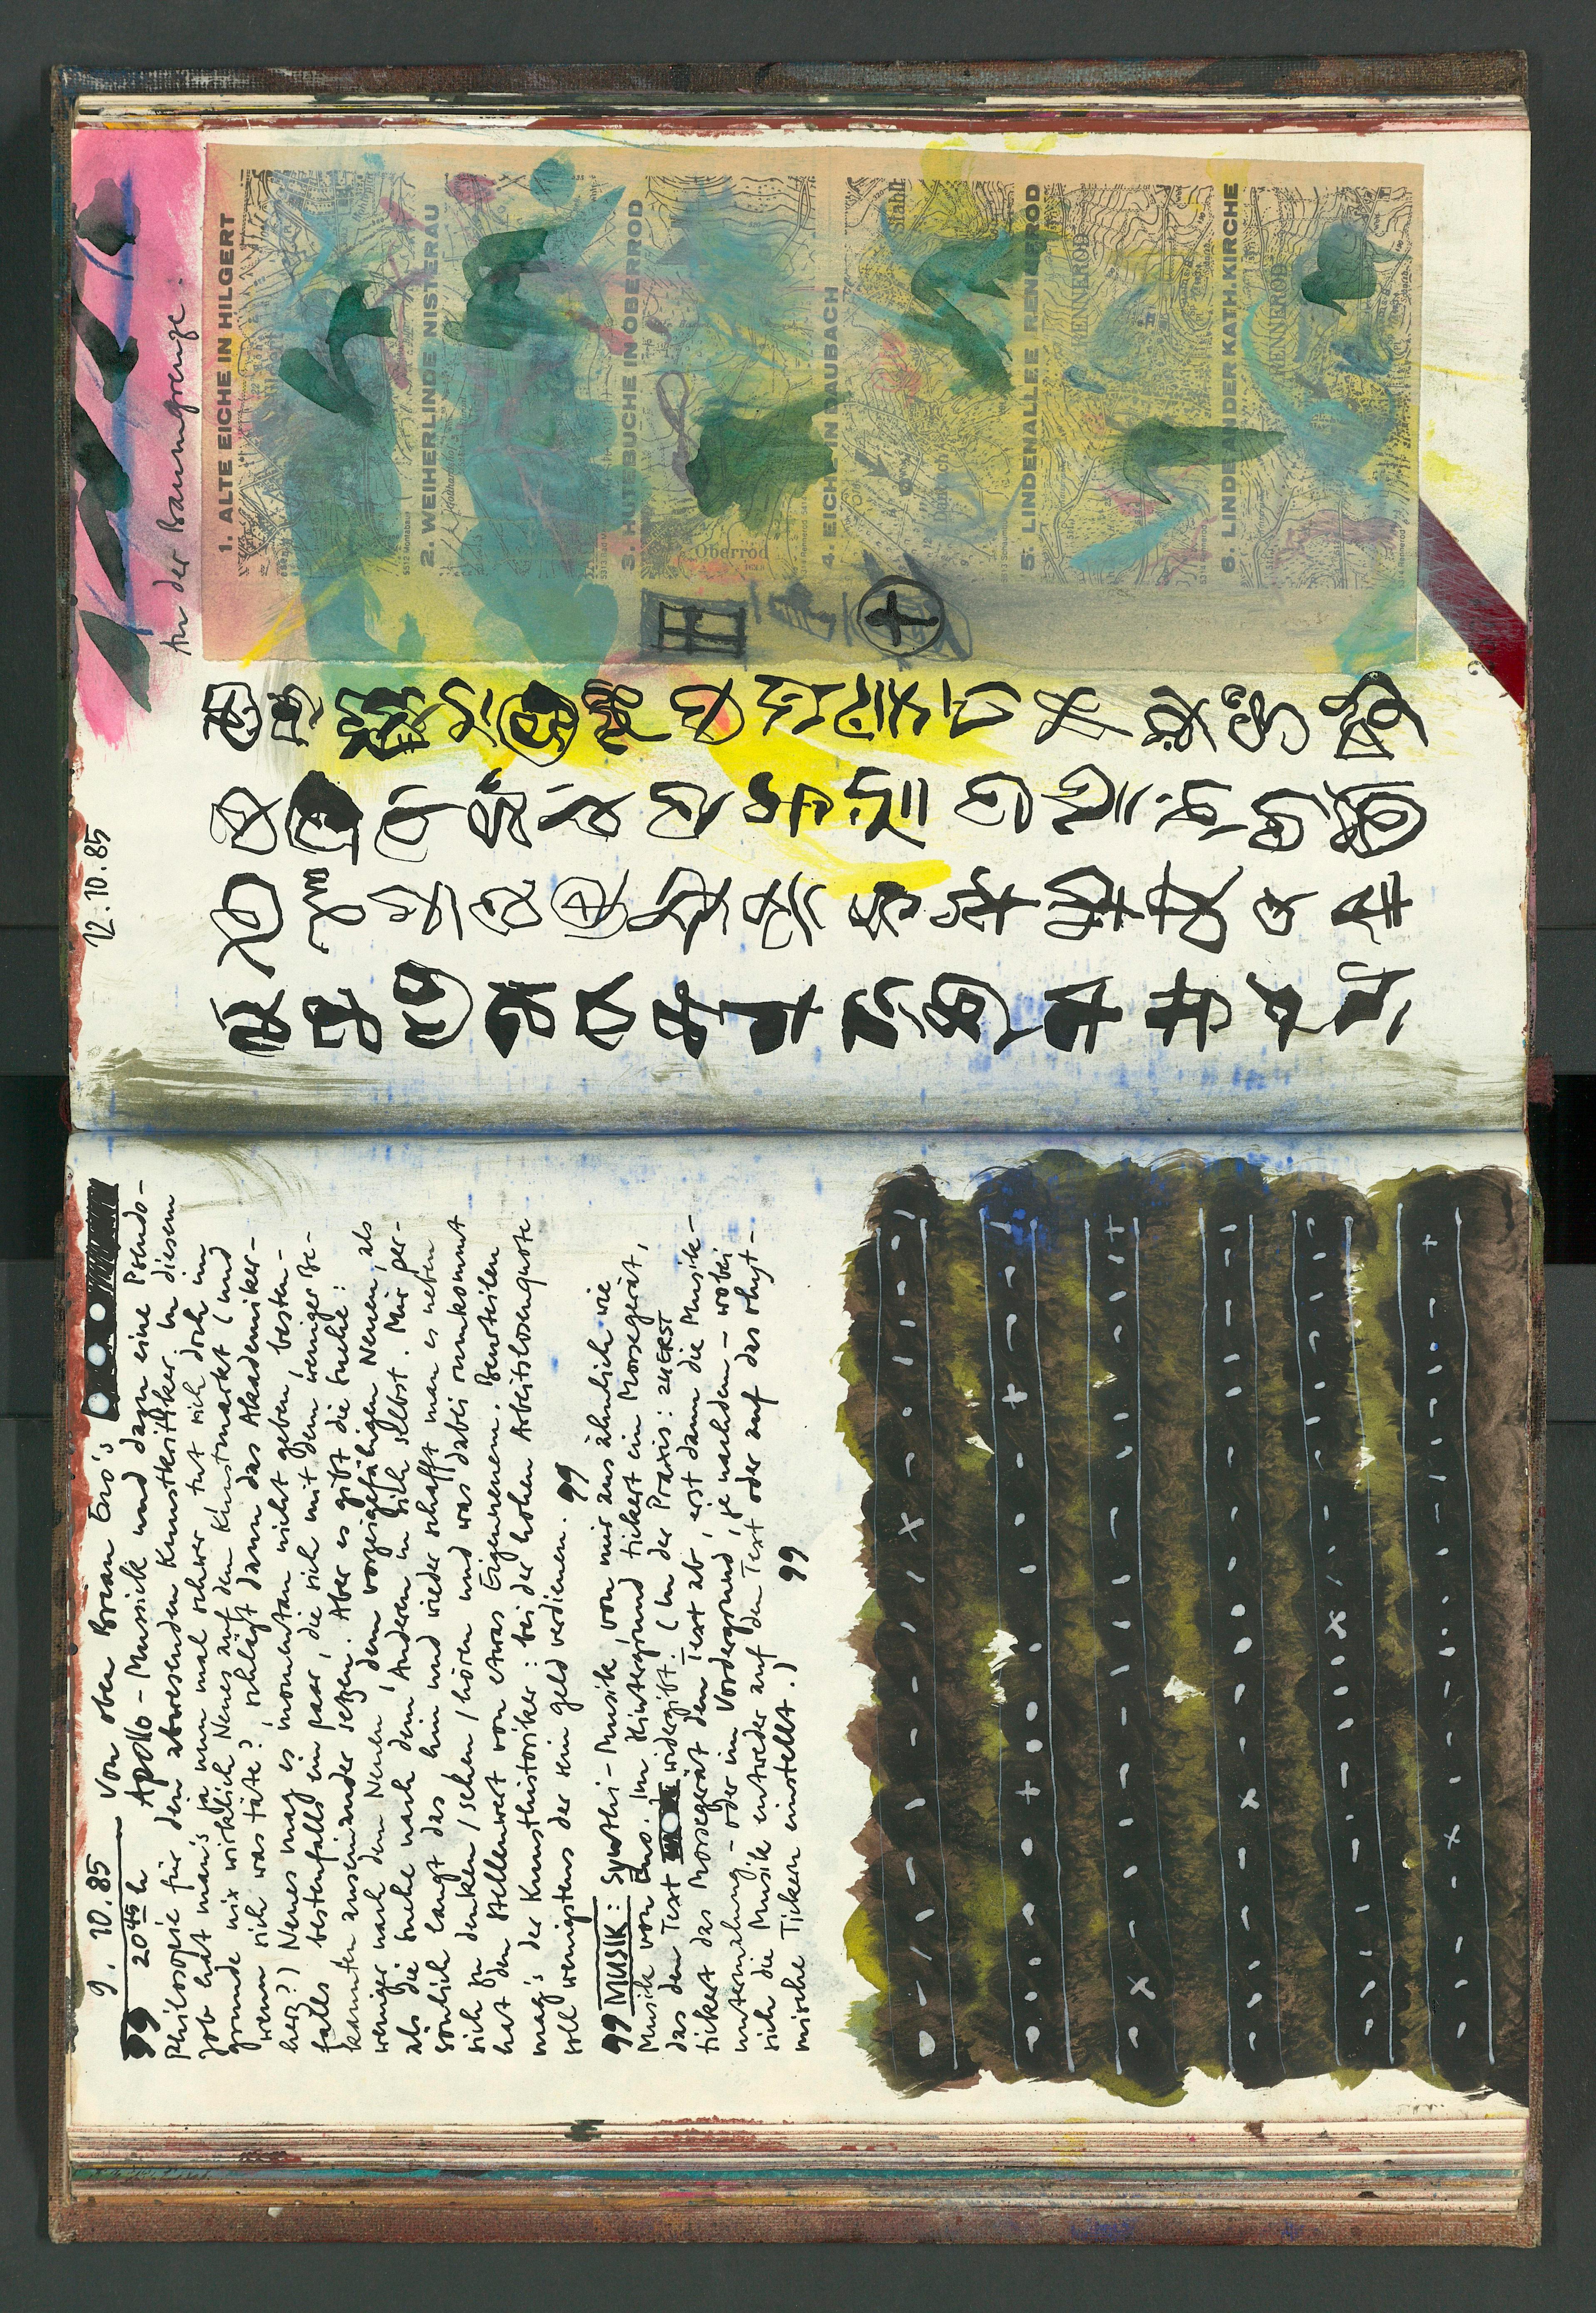 9.10.85 Von oben Brian Eno's
99 20 45 h Apollo-Musik und dazu eine Pseudo-
Philosopie für dein abwesenden Kunstkritiker. In diesem
Job hat man's ja nun mal schwer tut sich doch im
grunde nix wirklich Neues auf dem Kunstmarkt (und
wenn sich was täte?, schlägt dann das Akademiker-
herz?) Neues mag es momentan nicht geben, besten-
falls bestenfalls ein paar, die sich mit dem weniger Be-
kannten auseinander setzen. Aber es gibt die Suche:
weniger nach dem Neuen, dem vorzeigefähigen Neuen, als
als die Suche nach dem 'Anderen' in sich selbst. Mir per-
sönlich langt das hin und wieder schafft man es neben
sich zu denken/sehen/hören und was dabei rumkommt
hat den Stellenwert von etwas Eigenerem. Beurteilen
mag's der Kunsthistoriker: bei der hohen Arbeitslosenquote
soll wenigstens der sein geld verdienen. 99
99 MUSIK: Synthi-Musik, von mir aus ähnlich wie
Musik von Eno. Im Hintergrund tickert ein Morsegerät,
das den Text widergibt. (In der Praxis: ZUERST
tickert das Morsegerät den Text ab, erst dann die Musik-
untermalung - oder im Vordergrund, je nachdem - wobei
sich die Musik entweder auf den Text oder auf das rhyt-
mische Tickern einstellt.) 99
12.10.85
An der Baumgrenze:
1. ALTE EICHE IN HILGERT
2. WEIHERLINDE NISTERAU
3. HUTEBUCHE IN OBERROD
Oberrod
4. EICHE IN DAUBACH
Daubach
Stahlh
5. LINDENALLEE RENNEROD
RENNEROD
6. LINDE AN DER KATH. KIRCHE
RENNEROD